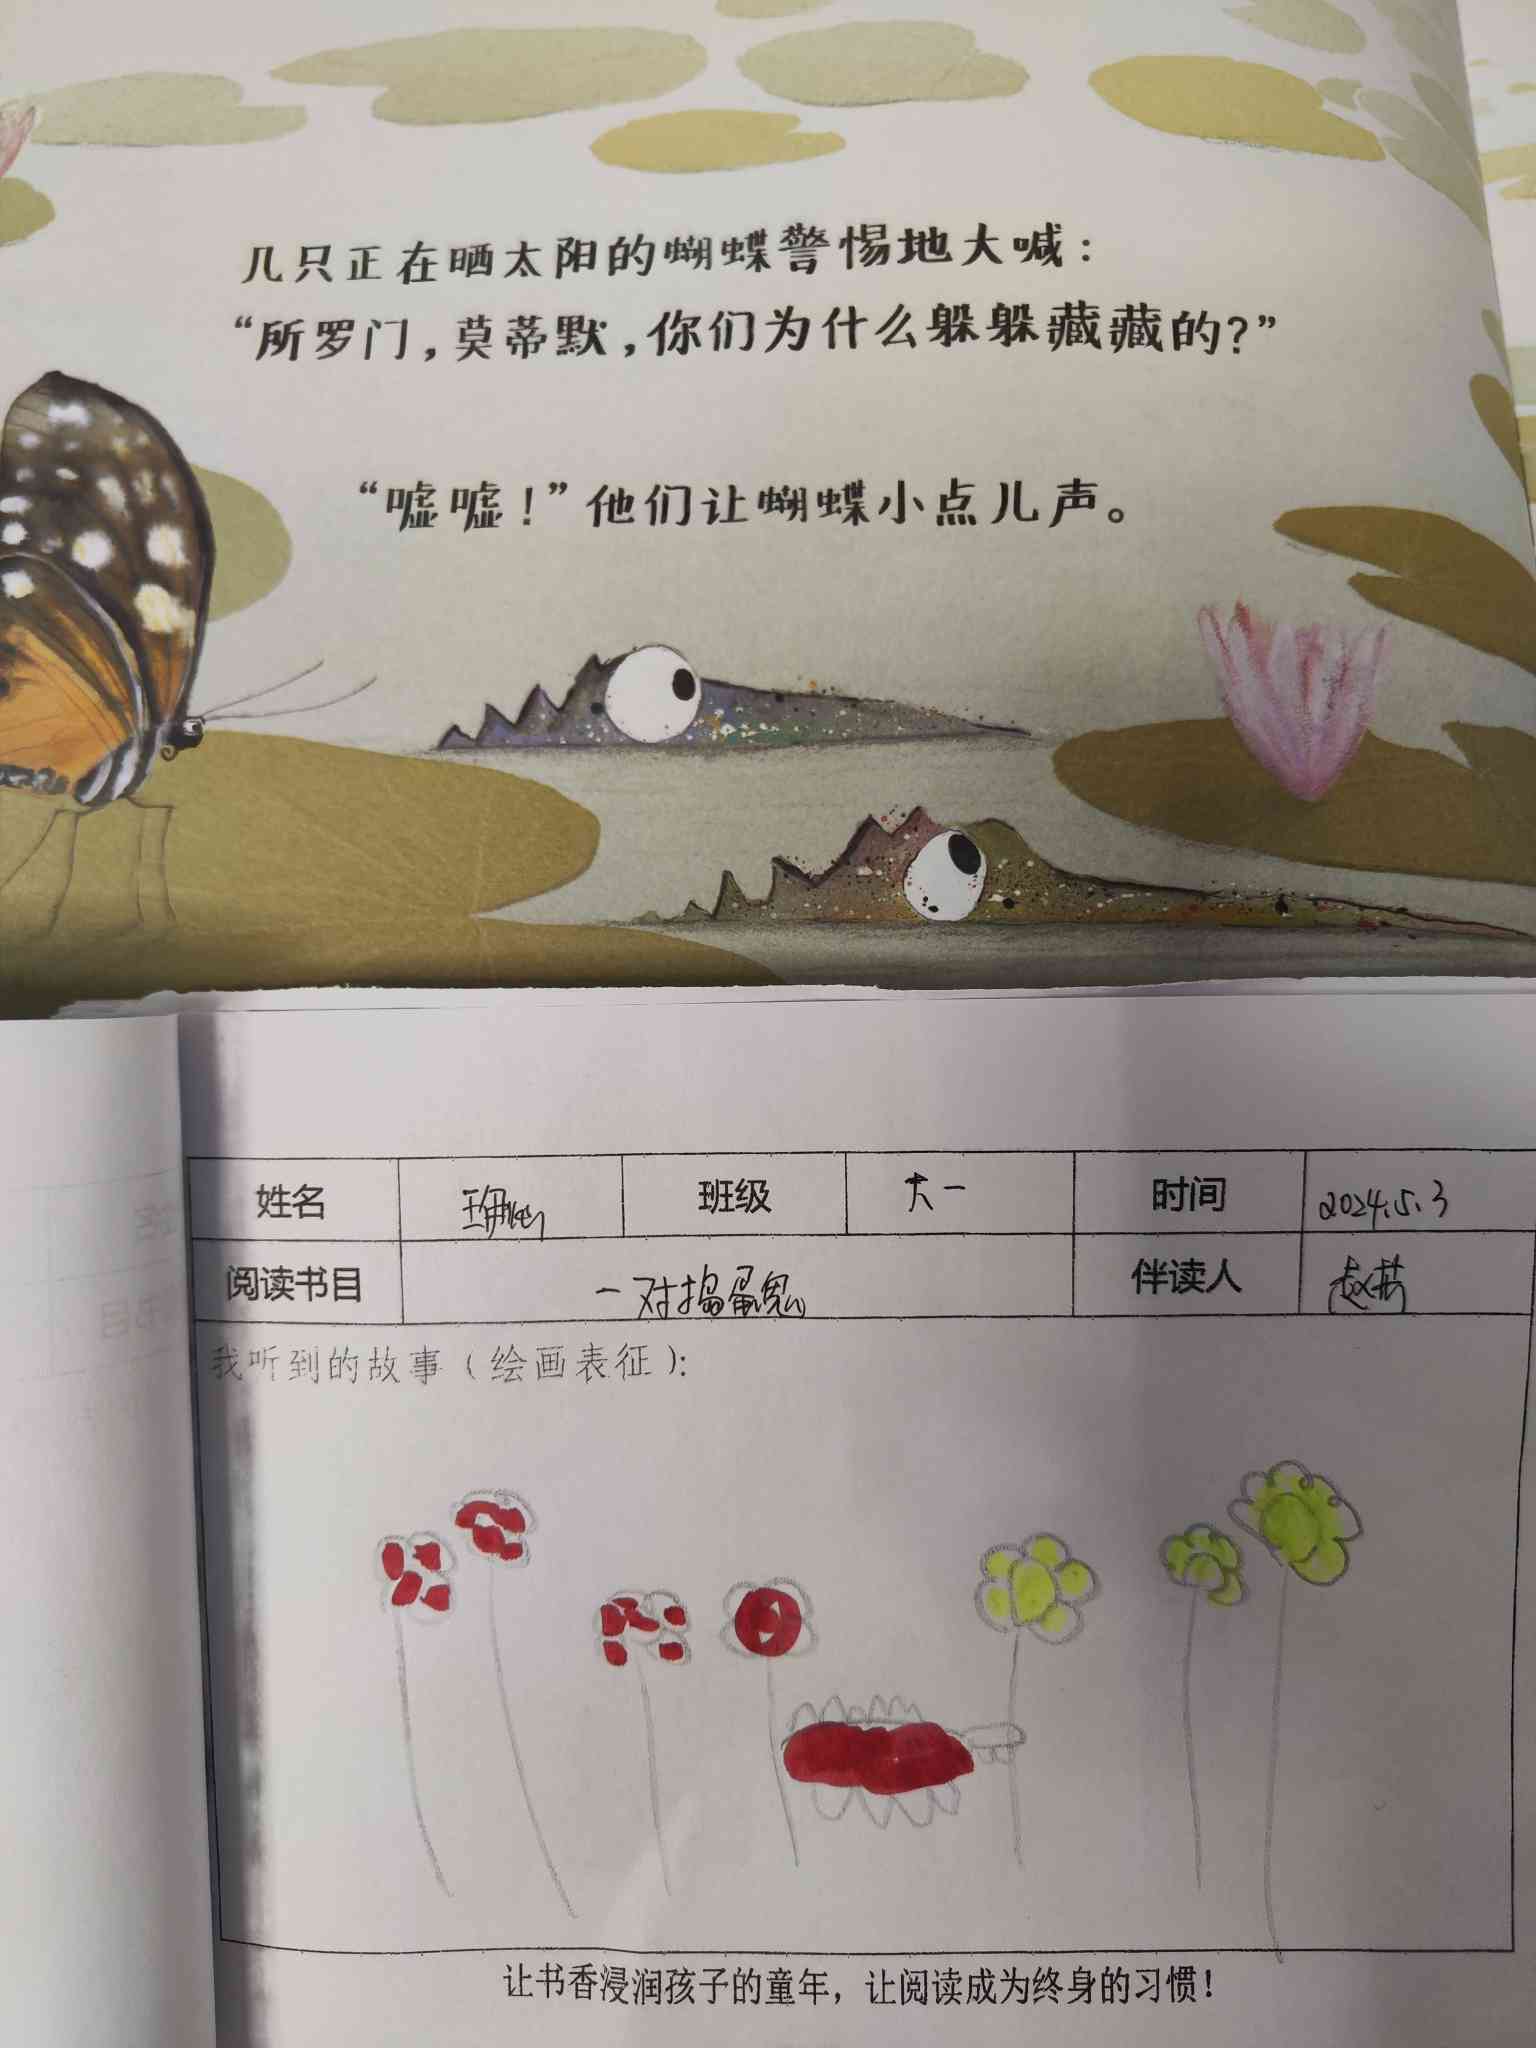 几只正在晒太阳的蝴蝶警惕地大喊：
“所罗门，莫蒂默，你们为什么躲躲藏藏的？”
“嘘嘘！”他们让蝴蝶小点儿声。
姓名 班级 大一 时间 2024.5.3
阅读书目 一对捣蛋鬼 伴读人
我听到的故事（绘画表征）：
让书香浸润孩子的童年，让阅读成为终身的习惯！